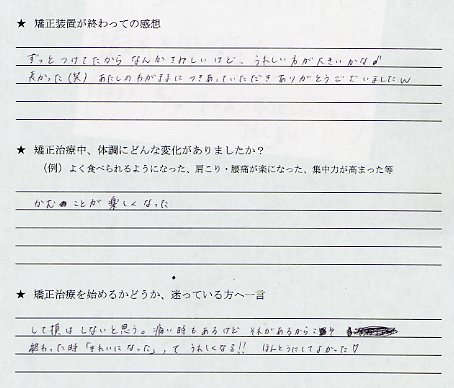 ★ 矯正装置が終わっての感想
ずっとつけてたから なんか さみしいけど、うれしい方が大きいかな♪
長かった(笑) あたしのわがままに つきあっていただき ありがとうございましたw
★ 矯正治療中、体調にどんな変化がありましたか？
(例) よく食べられるようになった、肩こり・腰痛が楽になった、集中力が高まった等
かむことが楽しくなった
★ 矯正治療を始めるかどうか、迷っている方へ一言
して損はしないと思う。痛い時もあるけど それがあるからこそ
終わった時「きれいになった」って うれしくなる!! ほんとうにしてよかった♡